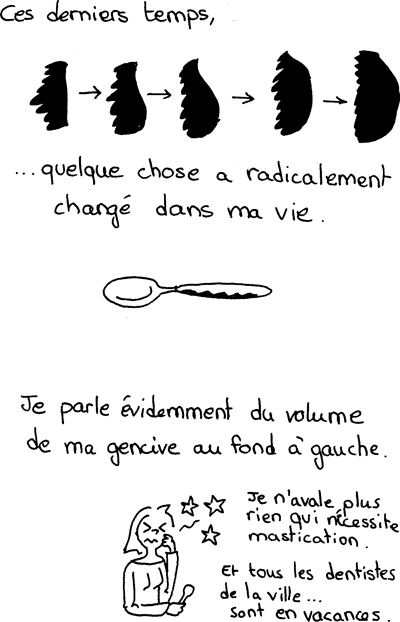 Ces derniers temps,
...quelque chose a radicalement
changé dans ma vie.
Je parle évidemment du volume
de ma gencive au fond à gauche.
Je n'avale plus
rien qui nécessite
mastication.
Et tous les dentistes
de la ville...
sont en vacances.